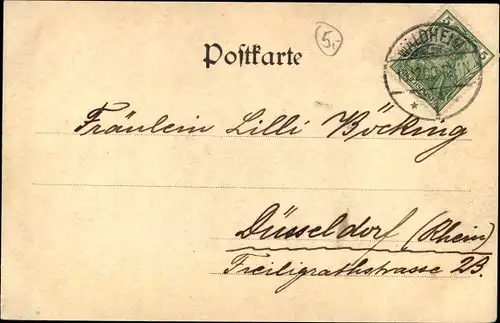 5,-
Postkarte
WALDHEIM
5
5
Fräulein Lilli Böcking
Düsseldorf (Rhein)
Freiligrathstrasse 23.